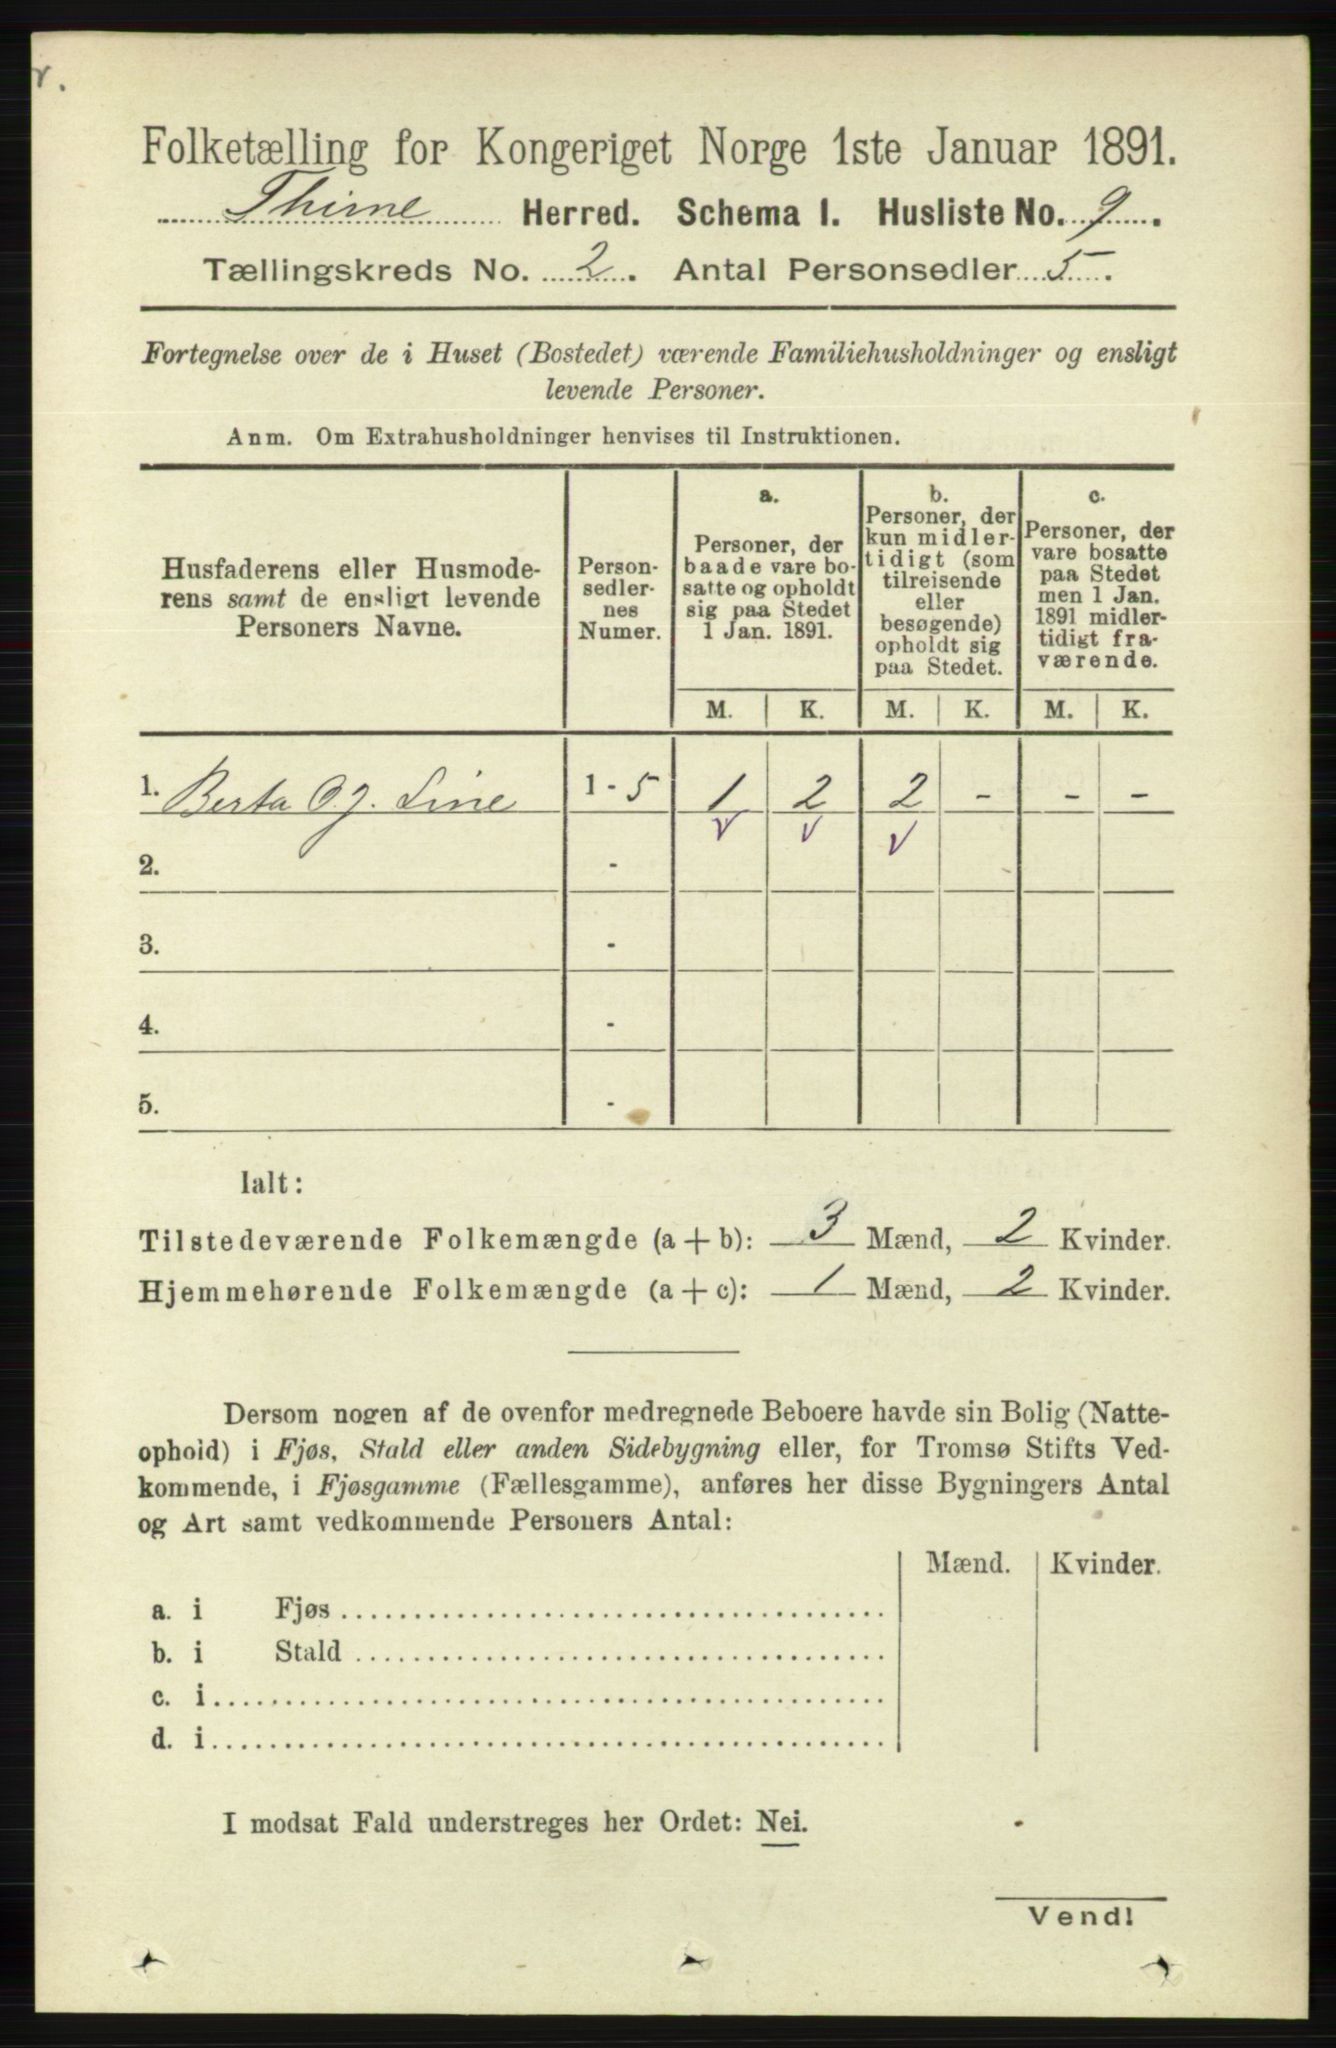 Folketælling for Kongeriget Norge 1ste Januar 1891.
Thime Herred. Schema I. Husliste No. 9.
Tællingskreds No. 2. Antal Personsedler 5.
Fortegnelse over de i Huset (Bostedet) værende Familiehusholdninger og ensligt
levende Personer.
Anm. Om Extrahusholdninger henvises til Instruktionen.
Husfaderens eller Husmode-
rens samt de ensligt levende
Personers Navne.
Person-
sedler-
nes
Numer.
a.
Personer, der
baade vare bo-
satte og opholdt
sig paa Stedet
1 Jan. 1891.
b.
Personer, der
kun midler-
tidigt (som
tilreisende
eller
besøgende)
opholdt sig
paa Stedet.
c.
Personer, der
vare bosatte
paa Stedet
men 1 Jan.
1891 midler-
tidigt fra-
værende.
M. K. M. K. M. K.
1. Berta O.g. Line 1 - 5 1 2 2 - - -
2. -
3. -
4. -
5. -
Ialt:
Tilstedeværende Folkemængde (a + b): 3 Mænd, 2 Kvinder.
Hjemmehørende Folkemængde (a + c): 1 Mænd, 2 Kvinder.
Dersom nogen af de ovenfor medregnede Beboere havde sin Bolig (Natte-
ophold) i Fjøs, Stald eller anden Sidebygning eller, for Tromsø Stifts Ved-
kommende, i Fjøsgamme (Fællesgamme), anføres her disse Bygningers Antal
og Art samt vedkommende Personers Antal:
Mænd. Kvinder.
a. i Fjøs
b. i Stald
c. i
d. i
I modsat Fald understreges her Ordet: Nei.
Vend!